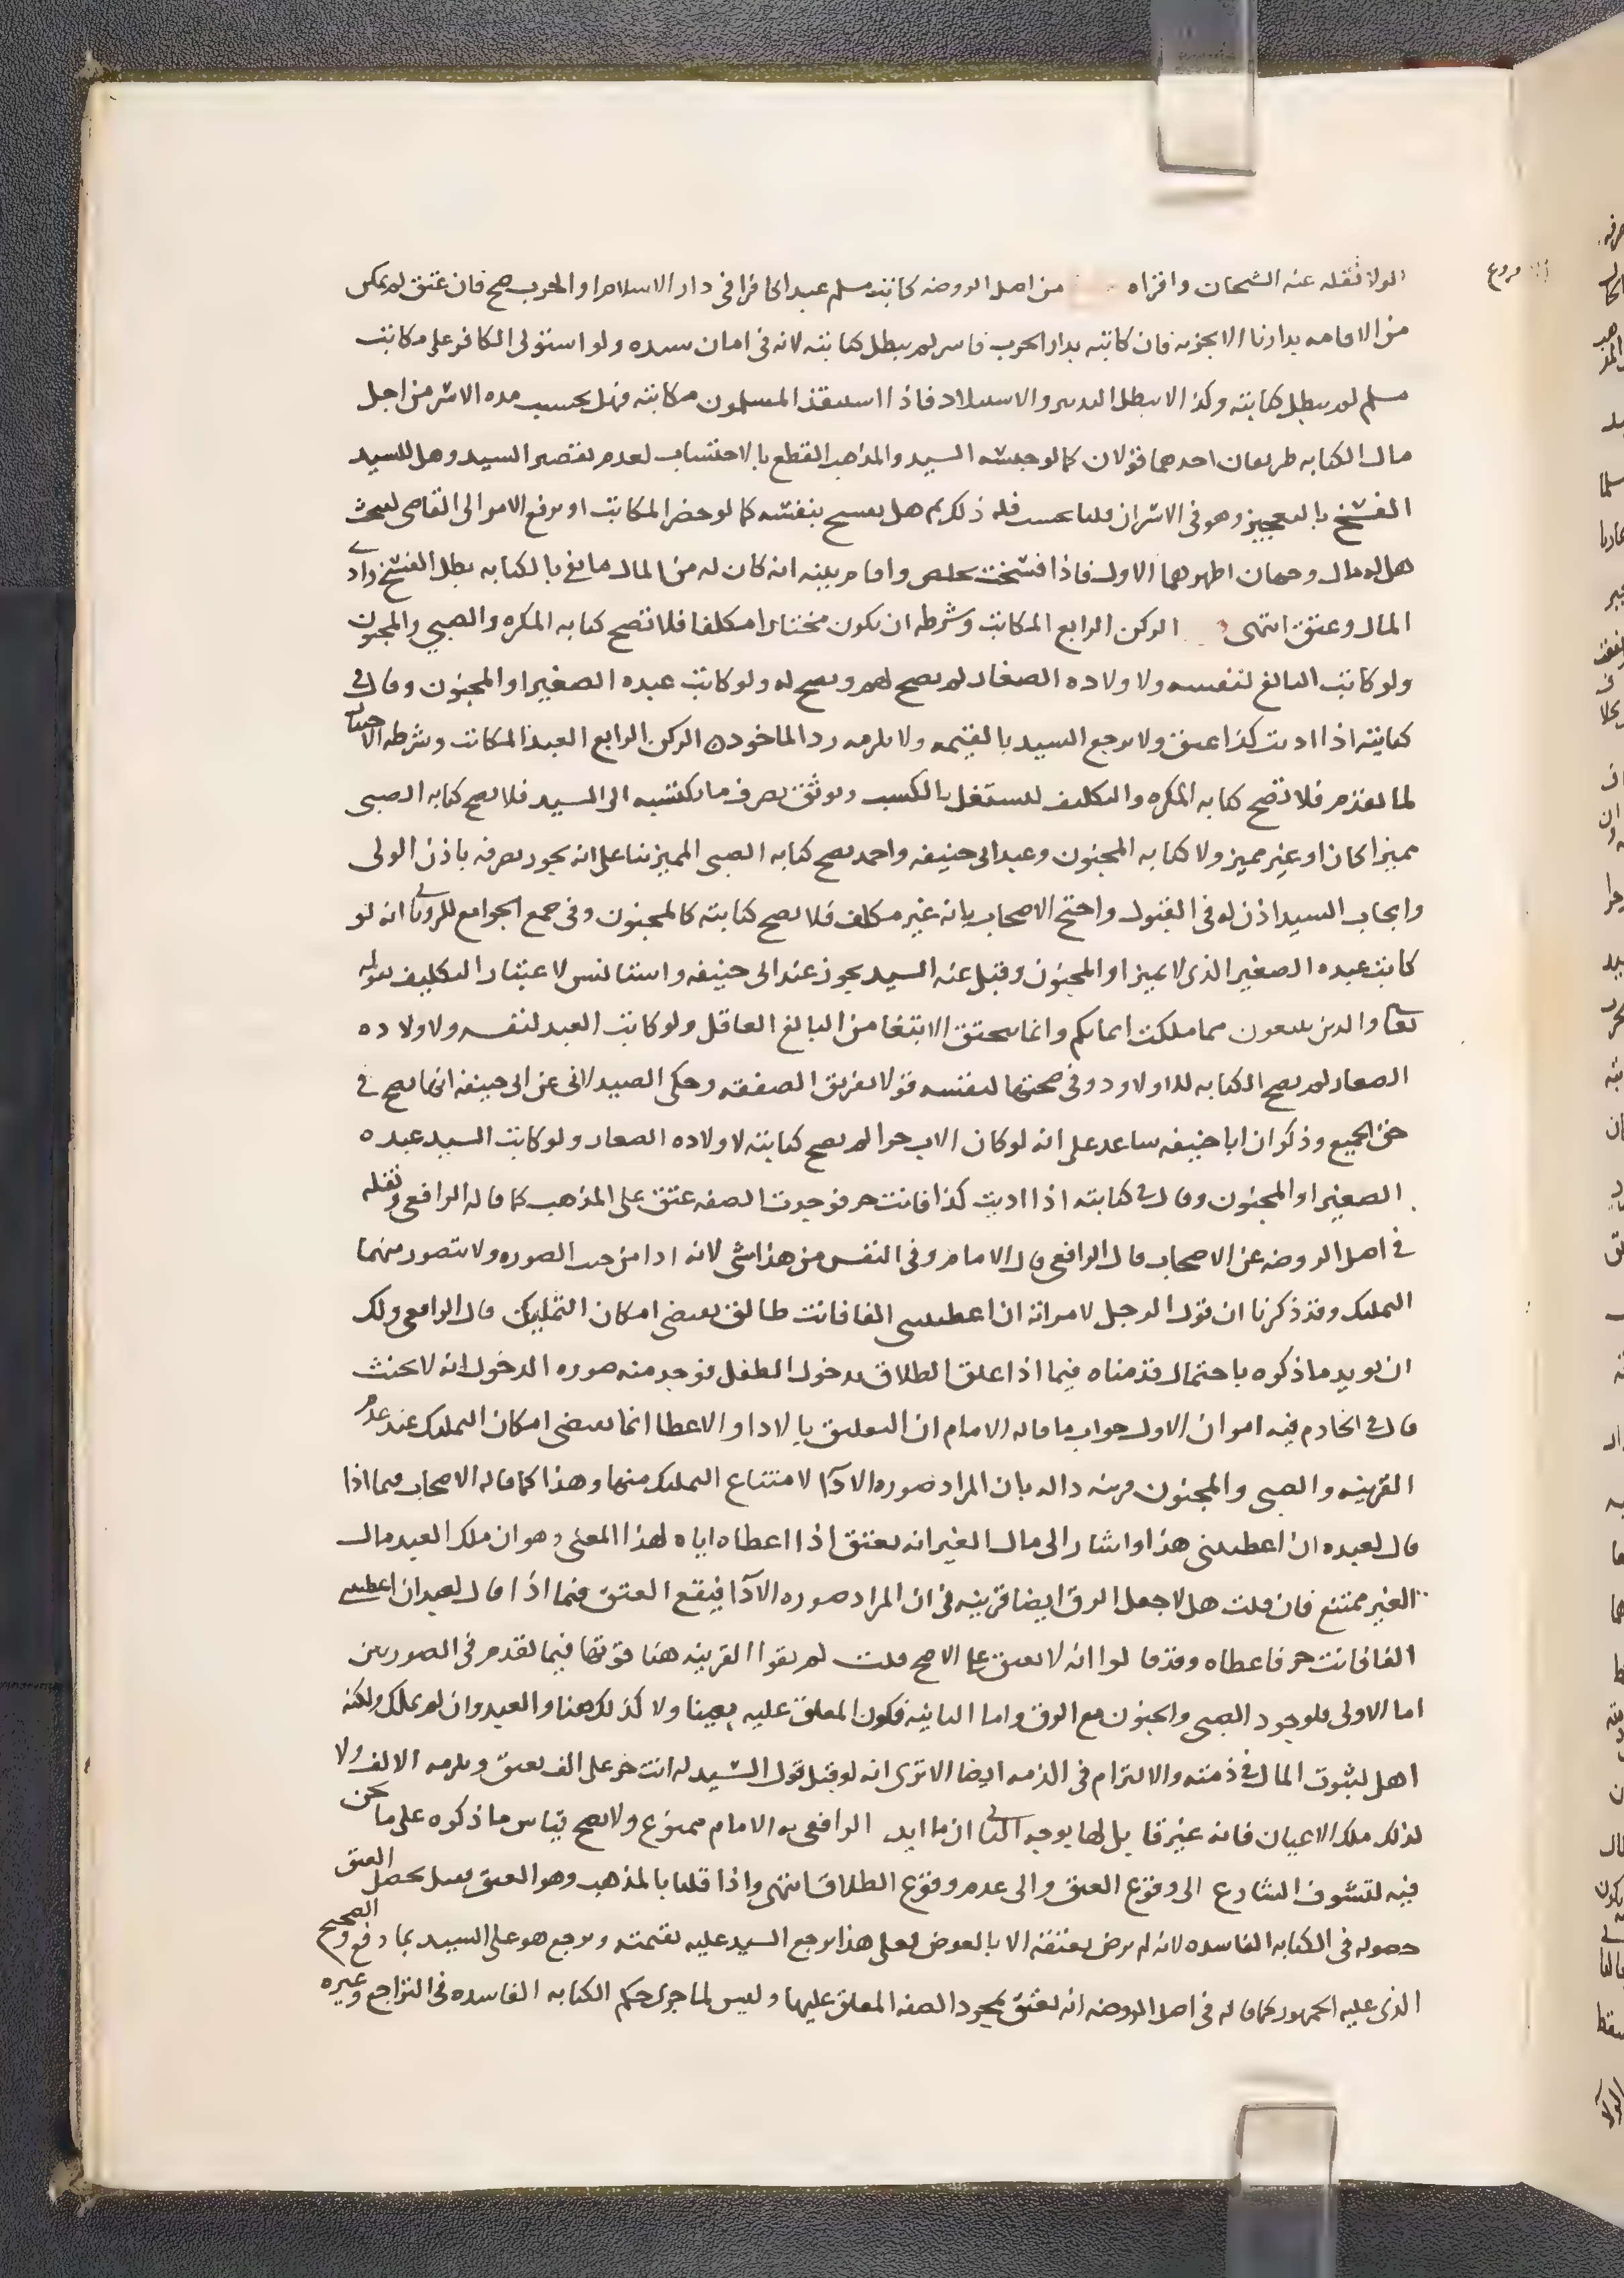 الولا فنقله عنه الشيخان واقراه من اصل الروضه كاتب مسلم عبدا كافرا في دار الاسلام او الحرب صح فان عتق لم يمكن
فروع
من الاقامه بدارنا الا بجزيه فان كاتبه بدار الحرب فاسر لم يبطل كتابته لانه في امان سيده ولو استولى الكافر على مكاتب
مسلم لم يبطل كتابته وكذا لا يبطل التدبير والاستيلاد فاذا استنقذ المسلمون مكاتبه فهل يحسب مده الاسر من اجل
مال الكتابه طريقان احدهما قولان كما لو حبسه السيد والمذهب القطع بالاحتساب لعدم تقصير السيد وهل للسيد
الفسخ بالتعجيز وهو في الاسر ان قلنا يحسب فله ذلك ثم هل يفسخ بنفسه كما لو حضر المكاتب او يرفع الامر الى القاضي ليبحث
هل له مال وجهان اظهرهما الاول فاذا فسخت فخلص واقام بينه انه كان له من المال ما يفي بالكتابه بطل الفسخ وادى
المال وعتق انتهى الركن الرابع المكاتب وشرطه ان يكون مختارا مكلفا فلا تصح كتابه المكره والصبي والمجنون
ولو كاتب البالغ لنفسه ولاولاده الصغار لم يصح لهم ويصح له ولو كاتب عبده الصغير او المجنون وقال في
كتابته اذا اديت كذا عتق ولا يرجع السيد بالقيمه ولا يلزمه رد الماخوذ الركن الرابع العبد المكاتب وشرطه الاختيار
لما تقدم فلا تصح كتابه المكره والتكليف ليستقل بالكسب ويوثق بصرف ما يكتسبه الى السيد فلا يصح كتابه الصبي
مميزا كان او غير مميز ولا كتابه المجنون وعند ابي حنيفه واحمد يصح كتابه الصبي المميز بنا على انه يجوز تصرفه باذن الولي
وايجاب السيد اذن له في القبول واحتج الاصحاب بانه غير مكلف فلا يصح كتابته كالمجنون وفي جمع الجوامع للروياني انه لو
كاتب عبده الصغير الذي لا يميز او المجنون وقبل عنه السيد يجوز عند ابي حنيفه واستانس لاعتبار التكليف بقوله
تعالى والذين يبتغون مما ملكت ايمانكم وانما يتحقق الابتغا من البالغ العاقل ولو كاتب العبد لنفسه ولاولاده
الصغار لم يصح الكتابه للاولاد وفي صحتها لنفسه قولا تفريق الصفقه وحكى الصيدلاني عن ابي حنيفه انها تصح في
حق الجميع وذكر ان ابا حنيفه ساعد على انه لو كان الاب حرا لم يصح كتابته لاولاده الصغار ولو كاتب السيد عبده
الصغير او المجنون وقال في كتابته اذا اديت كذا فانت حر فوجدت الصفه عتق على المذهب كما قاله الرافعي ونقله
في اصل الروضه عن الاصحاب قال الرافعي قال الامام وفي النفس من هذا شي لانه ادا من حيث الصوره ولا يتصور منهما
التمليك وقد ذكرنا ان قول الرجل لامراته ان اعطيتني الفا فانت طالق يقتضي امكان التمليك قال الرافعي ولك
ان تويد ما ذكره باحتمال قدمناه فيما اذا علق الطلاق بدخول الطفل فوجد منه صوره الدخول انه لا يحنث
قال في الخادم فيه امران الاول جواب ما قاله الامام ان التعليق بالادا والاعطا انما يقتضي امكان التمليك عند عدم
القرينه والصبي والمجنون قرينه داله بان المراد صوره الادآ لامتناع التمليك منهما وهذا كما قاله الاصحاب فيما اذا
قال لعبده ان اعطيتني هذا واشار الى مال الغير انه يعتق اذا اعطاه اياه لهذا المعنى وهو ان ملك العبد مال
الغير ممتنع فان قلت هل لا جعل الرق ايضا قرينه في ان المراد صوره الادآ فيقع العتق فيما اذا قال لعبد ان اعطيتني
الفا فانت حر فاعطاه وقد قالوا انه لا يعتق على الاصح قلت لم تقو القرينه هنا قوتها فيما تقدم في الصورتين
اما الاولى فلوجود الصبي والجنون مع الرق واما الثانيه فكون المعلق عليه بعينا ولا كذلك هنا والعبد وان لم يملك ولكنه
اهل لثبوت المال في ذمته والالتزام في الذمه ايضا الا ترى انه لو قبل قول السيد له انت حر على الف يعتق ويلزمه الالف ولا
لذلك ملك الاعيان فانه غير قابل لها بوجه الثاني ان ما ايد الرافعي به الامام ممنوع ولا يصح قياس ما ذكره على ما نحن
فيه لتشوف الشارع الى وقوع العتق والى عدم وقوع الطلاق انتهى واذا قلنا بالمذهب وهو العتق فهل يحصل العتق
حصوله في الكتابه الفاسده لانه لم يرض بعتقه الا بالعوض فعلى هذا يرجع السيد عليه بقيمته ويرجع هو على السيد بما دفع والصحيح
الذي عليه الجمهور كما قاله في اصل الروضه انه يعتق بمجرد الصفه المعلق عليها وليس لما جرى حكم الكتابه الفاسده في التراجع وغيره